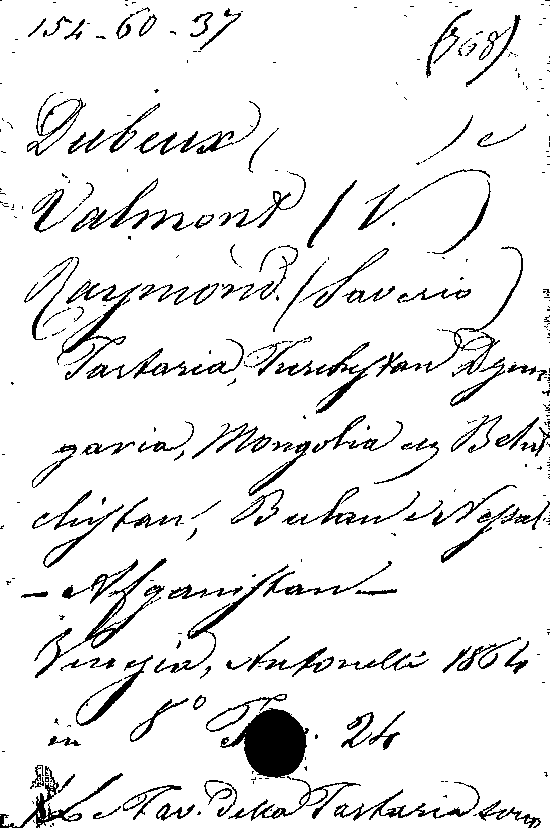 154-60-37 (768)
Dubeux ( ) e
Valmont (V. )
Raymond. (Saverio)
Tartaria, Turchistan Dzun
garia, Mongolia e Belu
chistan, Butan e Nepal
- Afganistan -
Venezia, Antonelli 1864
in 8º T 24
Le Tav. della Tartaria sono